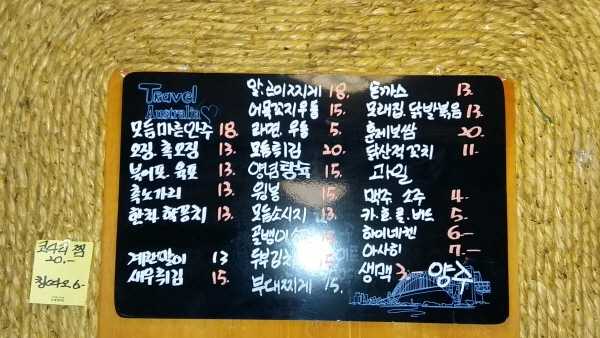 Travel
Australia
모듬마른안주 18.
오징. 촉오징 13.
북어포. 육포 13.
촉노가리 13.
한치. 학꽁치 13.
계란말이 13
새우튀김 15.
알.곤이찌게 18.
어묵꼬치우동 15.
라면. 우동 5.
모듬튀김 20.
양념탕슉 15.
윙봉 15.
모듬소시지 13.
골뱅이 15.
두부김치
부대찌게 15.
돈까스 13.
모래집. 닭발볶음 13.
훈제보쌈 20.
닭산적꼬치 11.
과일
맥주 소주 4.
카.호.버드 5.
하이네켄 6.—
아사히 7.—
생맥 3.— 양주
코다리찜
20.—
칭따오 6-